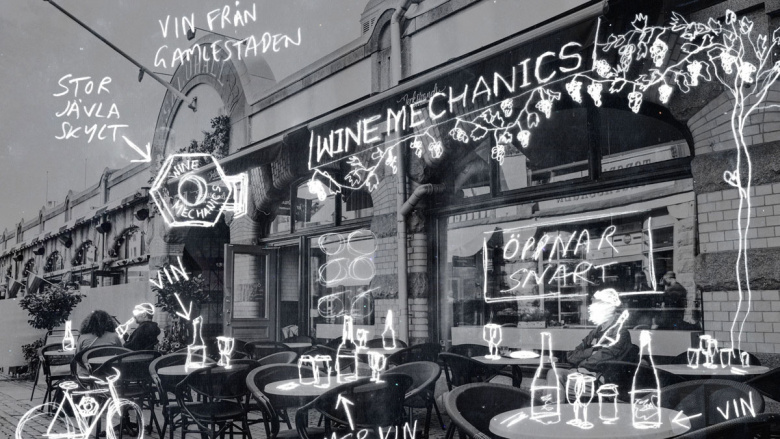 VIN FRÅN
GAMLESTADEN
STOR
JÄVLA
SKYLT
WINE MECHANICS
WINE
MECHANICS
ÖPPNAR
SNART
VIN
VIN
MER VIN